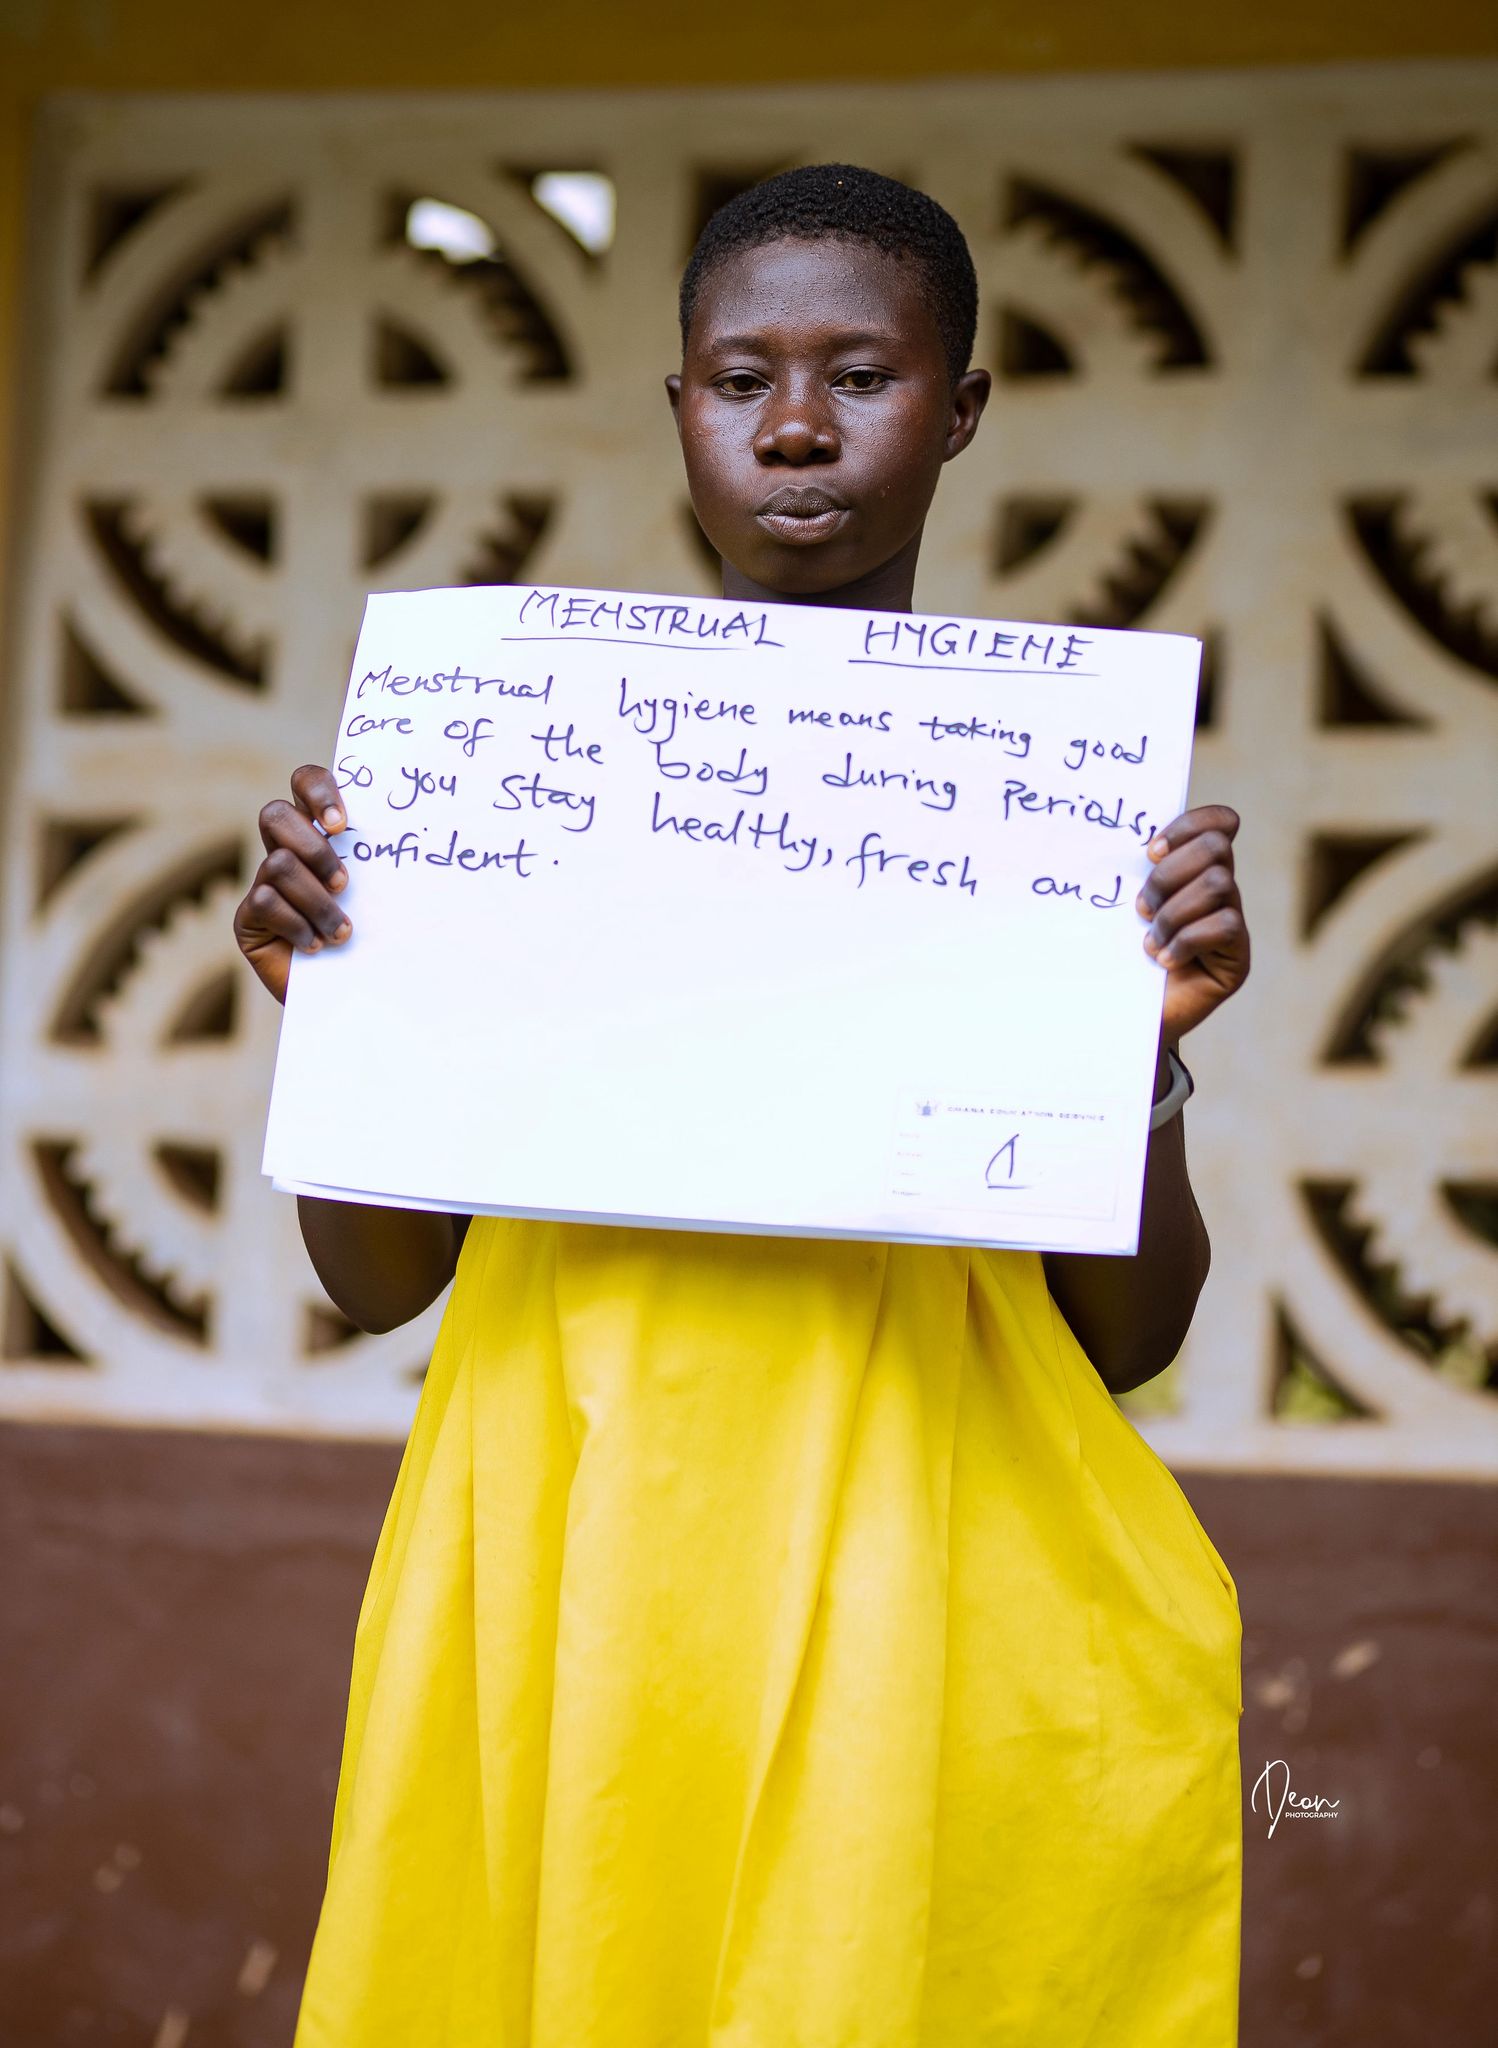 MENSTRUAL HYGIENE
Menstrual hygiene means taking good
care of the body during Periods,
So you stay healthy, fresh and
confident.
GHANA EDUCATION SERVICE
1
Deon
PHOTOGRAPHY